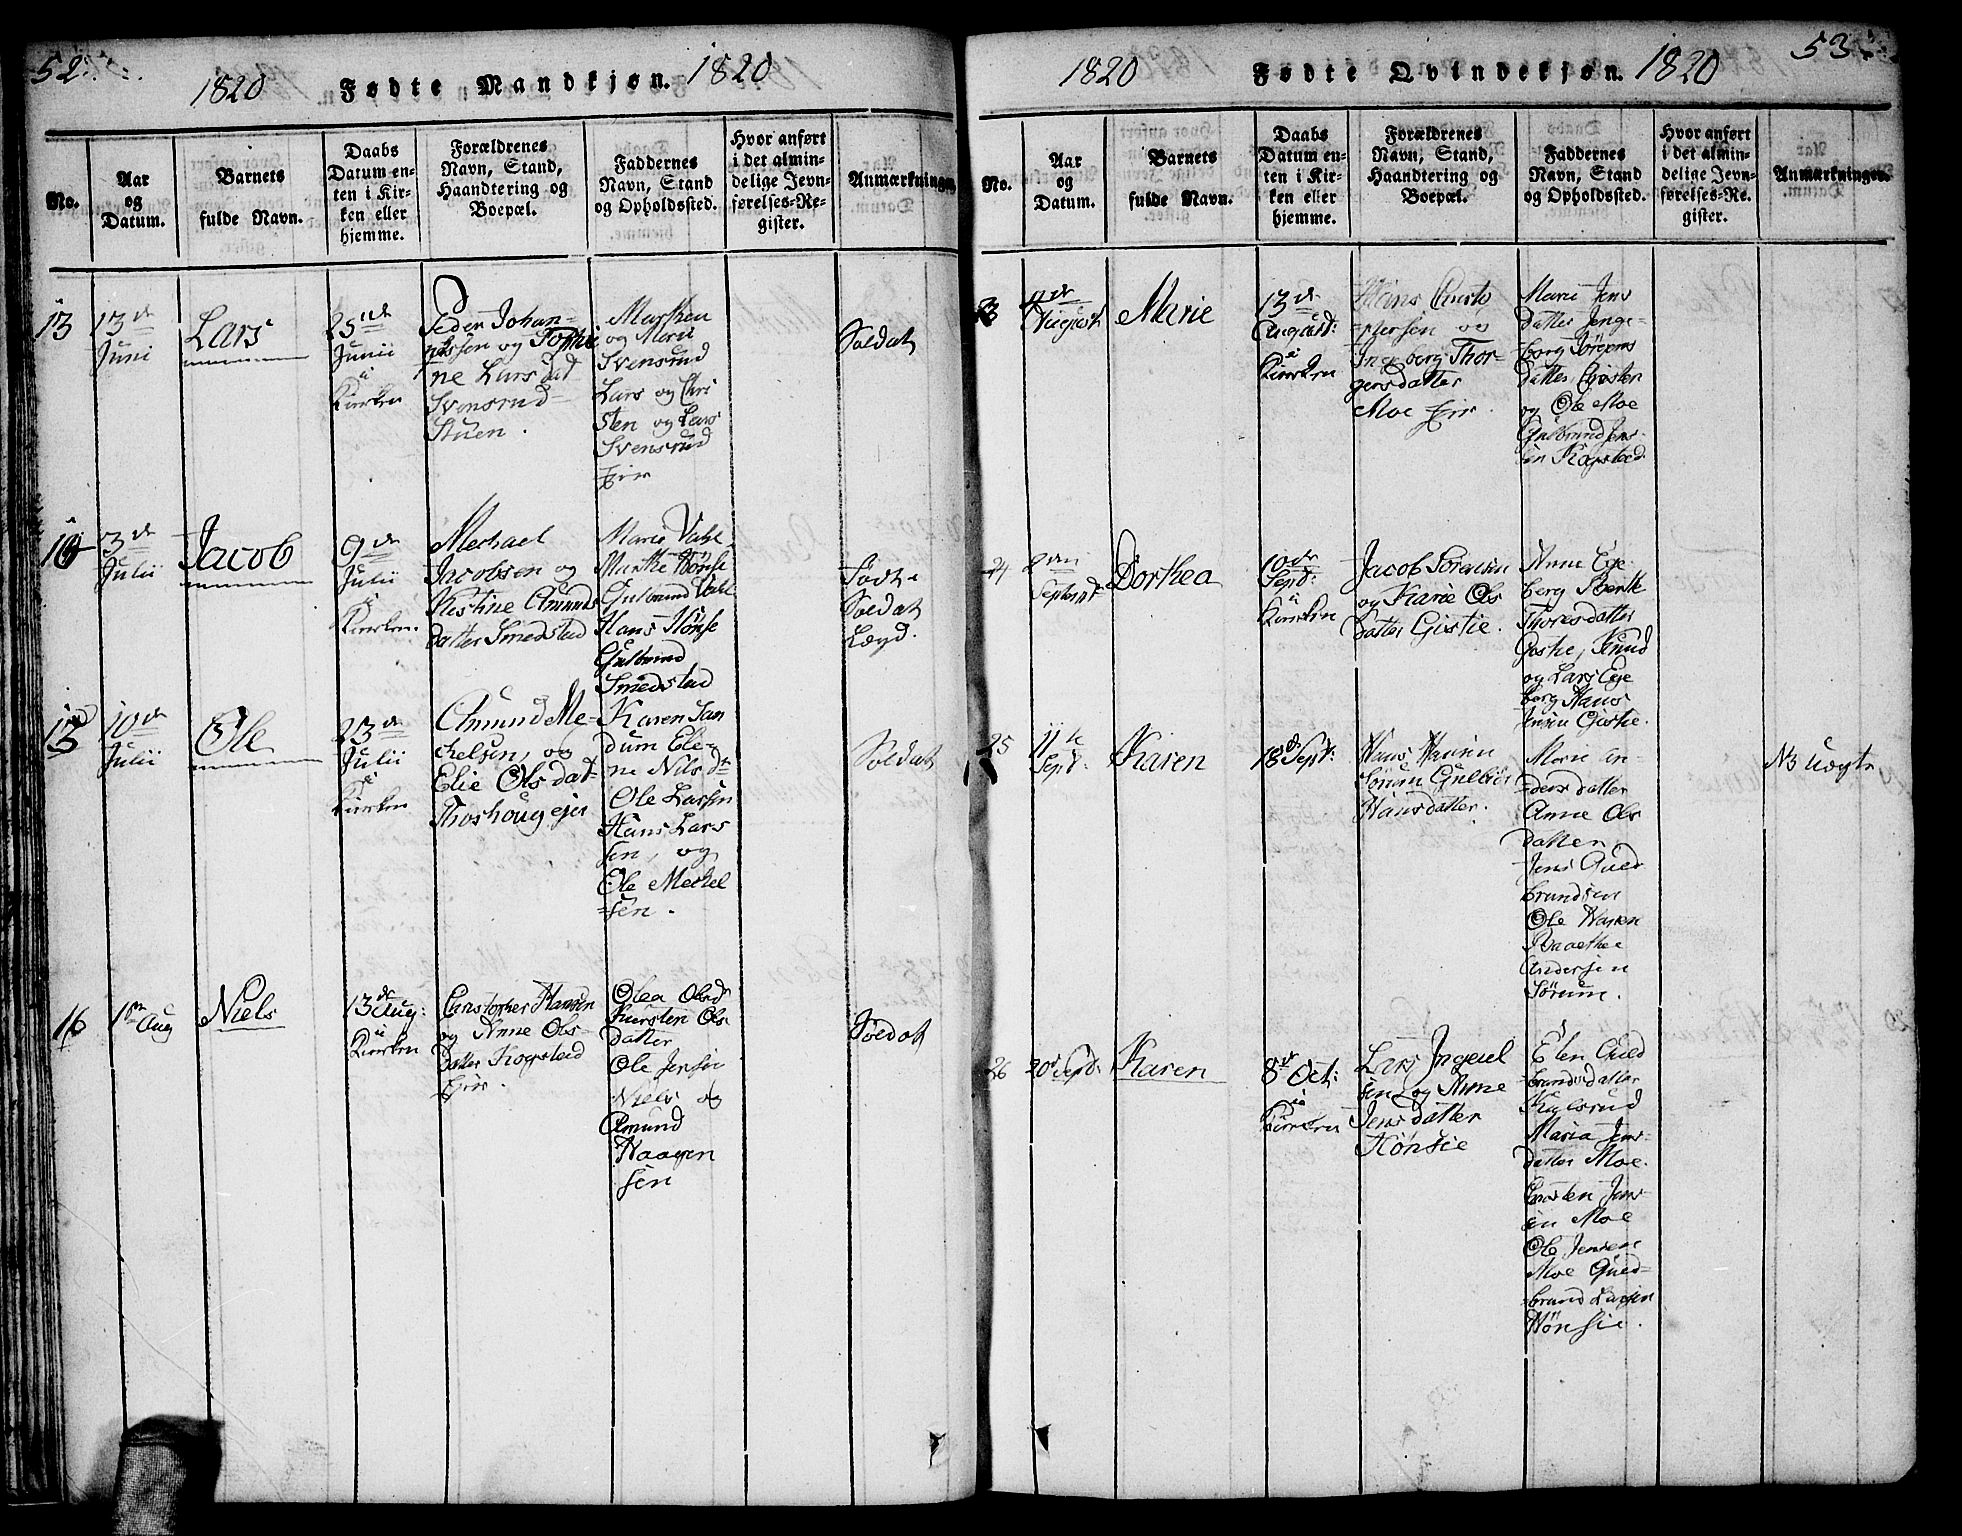 52
1820 Fødte Mandkjøn. 1820
No.
Aar
og
Datum.
Barnets
fulde Navn.
Daabs
Datum en-
ten i Kir-
ken eller
hjemme.
Forældrenes
Navn, Stand,
Haandtering og
Boepæl.
Faddernes
Navn, Stand
og Opholdssted.
Hvor anført
i det almin-
delige Jevn-
førelses-Re-
gister.
Anmærkninger.
13
13de
Juni
Lars
25de
Junii
i
Kirken
Peder Johan-
nessen og Sophi
ne Larsdat
Svensrud-
Stuen.
Marthen
og Marie
Svensrud
Lars og Chri
sten og Lars
Svensrud
Eier
Soldat
3de
Julii
Jacob
9de
Julii
i
Kirken.
Mechael
Jacobsen og
Kistine Amunds
datter Smedstad
Marie Vahl
Marthe Hönse
Gulbrand Vahl
Hans Hönse
Gulbrand
Smedstad
Soldat
Lægd.
15
10de
Julii
Ole
23de
Julii
i
Kirken
Amund Me-
kelsen, og
Elie Olsdat-
Throshoug ejer
Karen San
dum Ele-
ne Nilsdr
Ole Larsen
Hans Lars
sen, og
Ole Mechel
-sen.
Soldat
16
1ste Aug
Niels
13de Aug:
i
Kirken
Christopher Hansen
og Anne Ols
datter Kogstad
Eier.
Olea Olsdr
Kirsten Ols
datter
Ole Jensen
Niels og
Amund
Haagen
sen
Soldat
53
1820 Fødte Qvindekjøn. 1820
No.
Aar
og
Datum.
Barnets
fulde Navn.
Daabs
Datum en-
ten i Kir-
ken eller
hjemme.
Forældrenes
Navn, Stand,
Haandtering og
Boepæl.
Faddernes
Navn, Stand
og Opholdssted.
Hvor anført
i det almin-
delige Jevn-
førelses-Re-
gister.
Anmærkninger.
23
August
Marie
13de
August:
i
Kirken
Hans Christo
-phersen og
Ingeborg Thor-
gersdatter
Moe Eier.
Marie Jens
datter Inge-
borg Jørgens
datter Christen
og Ole Moe
Gulbrand Jens-
sen Kogstad.
24
2den
Septembr
Dorthea
10de
Sept:
i
Kirken
Jacob Sørensen
og Karie Ols
datter Gistie.
Anne Ege
berg Berthe
Thoresdatter
Gistie, Knud
og Lars Ege
berg Hans
Jensen Gistie.
25
11te
Sept:
Karen
18de Sept:
Hans Hansen
Sørum Gulbior
Hansdatter.
Marie An-
dersdatter
Anne Ols
datter
Jens Guld
brandsen
Ole Hansen
Andersen
Sørum.
N3 Uægte
26
20de Sept:
Karen
8de Oct:
i
Kirken
Lars Ingeul
sen og Anne
Jensdatter
Hönsie
Elen Guld
-brandsdatter
Kylsrud
Maria Jens-
datter Moe.
Christen Jens-
en Moe
Ole Jensen
Moe Guld-
-brand Larsen
Hönsie.